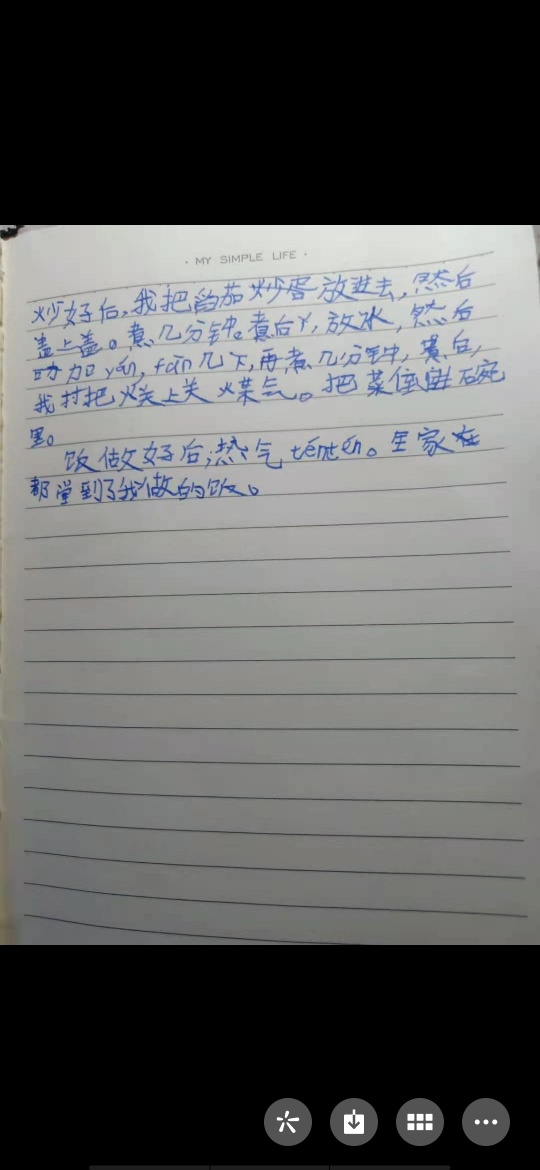 · MY SIMPLE LIFE ·
炒好后,我把番茄炒蛋放进去,然后
盖上盖。煮几分钟。煮后,放冰,然后
加yán,fān几下,再煮几分钟,煮后,
我把火关上关火煤气。把菜倒进碗
里。
饭做好后,热气téntén。全家在
都尝到了我做的饭。